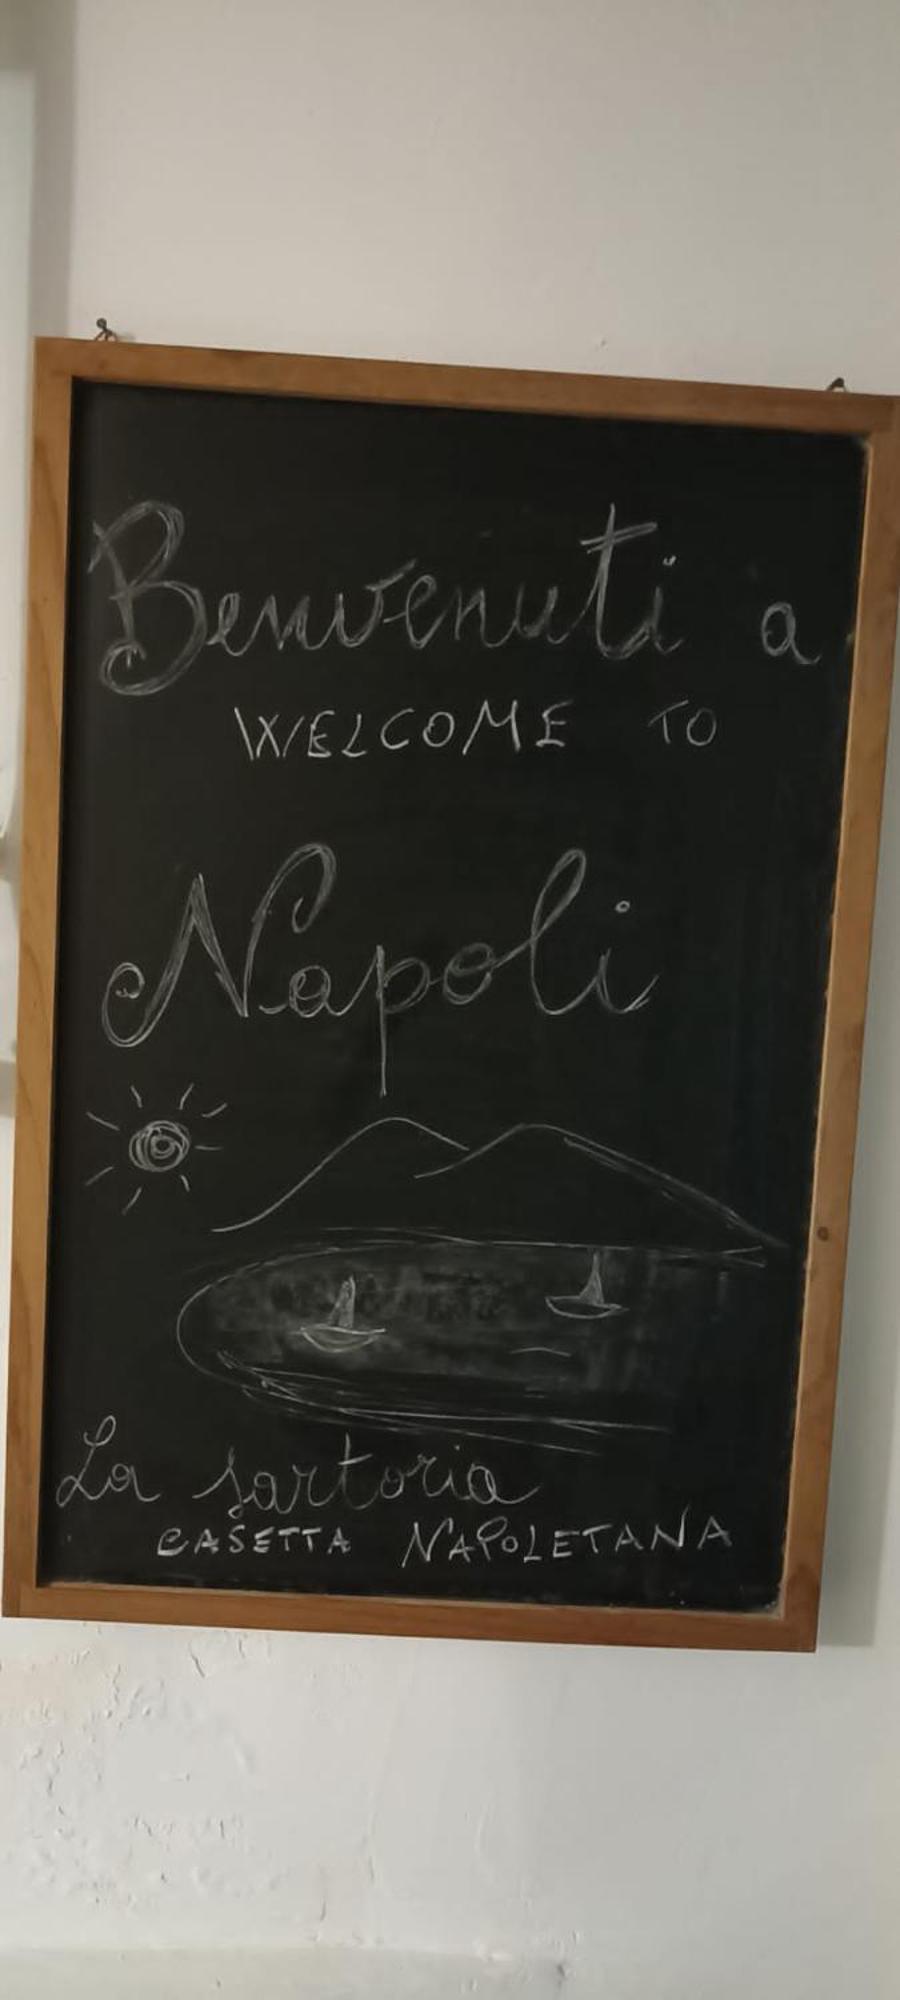 Benvenuti a
WELCOME TO
Napoli
La sartoria
CASETTA NAPOLETANA